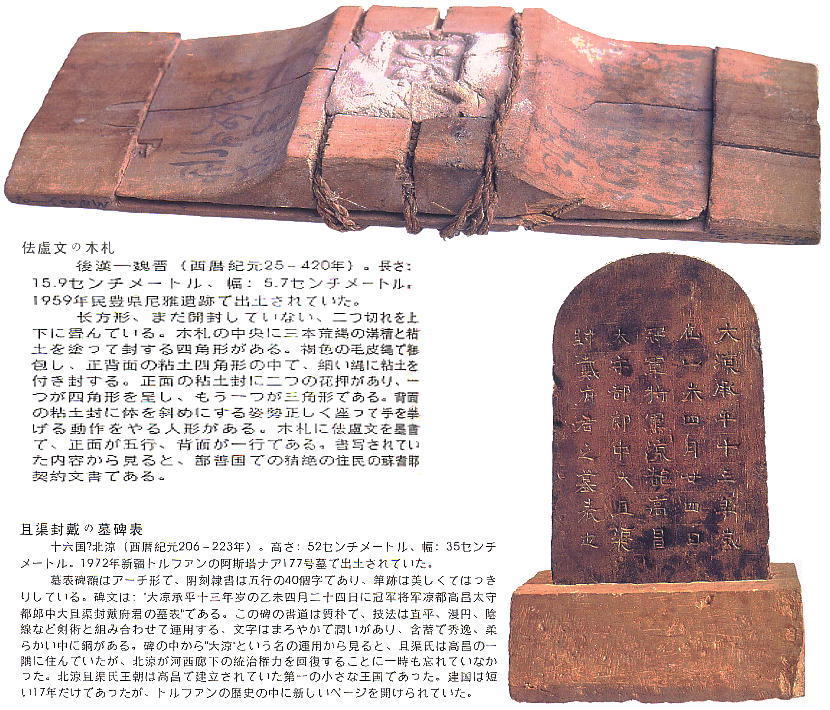 佉盧文の木札
後漢—魏晋（西暦紀元25－420年）。長さ：
15.9センチメートル、幅：5.7センチメートル。
1959年民豊県尼雅遺跡で出土されていた。
长方形、まだ開封していない、二つ切れを上
下に畳んている。木札の中央に三本荒縄の溝槽と粘
土を塗って封する四角形がある。褐色の毛皮縄で梱
包し、正背面の粘土四角形の中で、細い縄に粘土を
付き封する。正面の粘土封に二つの花押があり、一
つが四角形を呈し、もう一つが三角形である。背面
の粘土封に体を斜めにする姿勢正しく座って手を挙
げる動作をやる人形がある。木札に佉盧文を墨書
で、正面が五行、背面が一行である。書写されてい
た内容から見ると、鄯善国での精絶の住民の蘇耆耶
契約文書である。
且渠封戴の墓碑表
十六国?北涼（西暦紀元206－223年）。高さ：52センチメートル、幅：35センチ
メートル。1972年新疆トルファンの阿斯塔ナア177号墓で出土されていた。
墓表碑額はアーチ形で、阴刻隷書は五行の40個字であり、筆跡は美しくてはっき
りしている。碑文は："大凉承平十三年岁の乙未四月二十四日に冠军将军凉都高昌太守
都郎中大且渠封戴府君の墓表"である。この碑の書道は質朴で、技法は直平、漫円、陰
線など剣術と組み合わせて運用する、文字はまろやかで潤いがあり、含蓄で秀逸、柔
らかい中に綱がある。碑の中から"大凉"という名の運用から見ると、且渠氏は高昌の一
隅に住んていたが、北凉が河西廊下の統治権力を回復することに一時も忘れていなか
つた。北凉且渠氏王朝は高昌で建立されていた第一の小さな王国であった。建国は短
い17年だけてあったが、トルファンの歴史の中に新しいページを開けられていた。
大涼承平十三年歲
在乙未四月廿四日
冠軍將軍涼都高昌
太守都郎中大且渠
封戴府君之墓表也